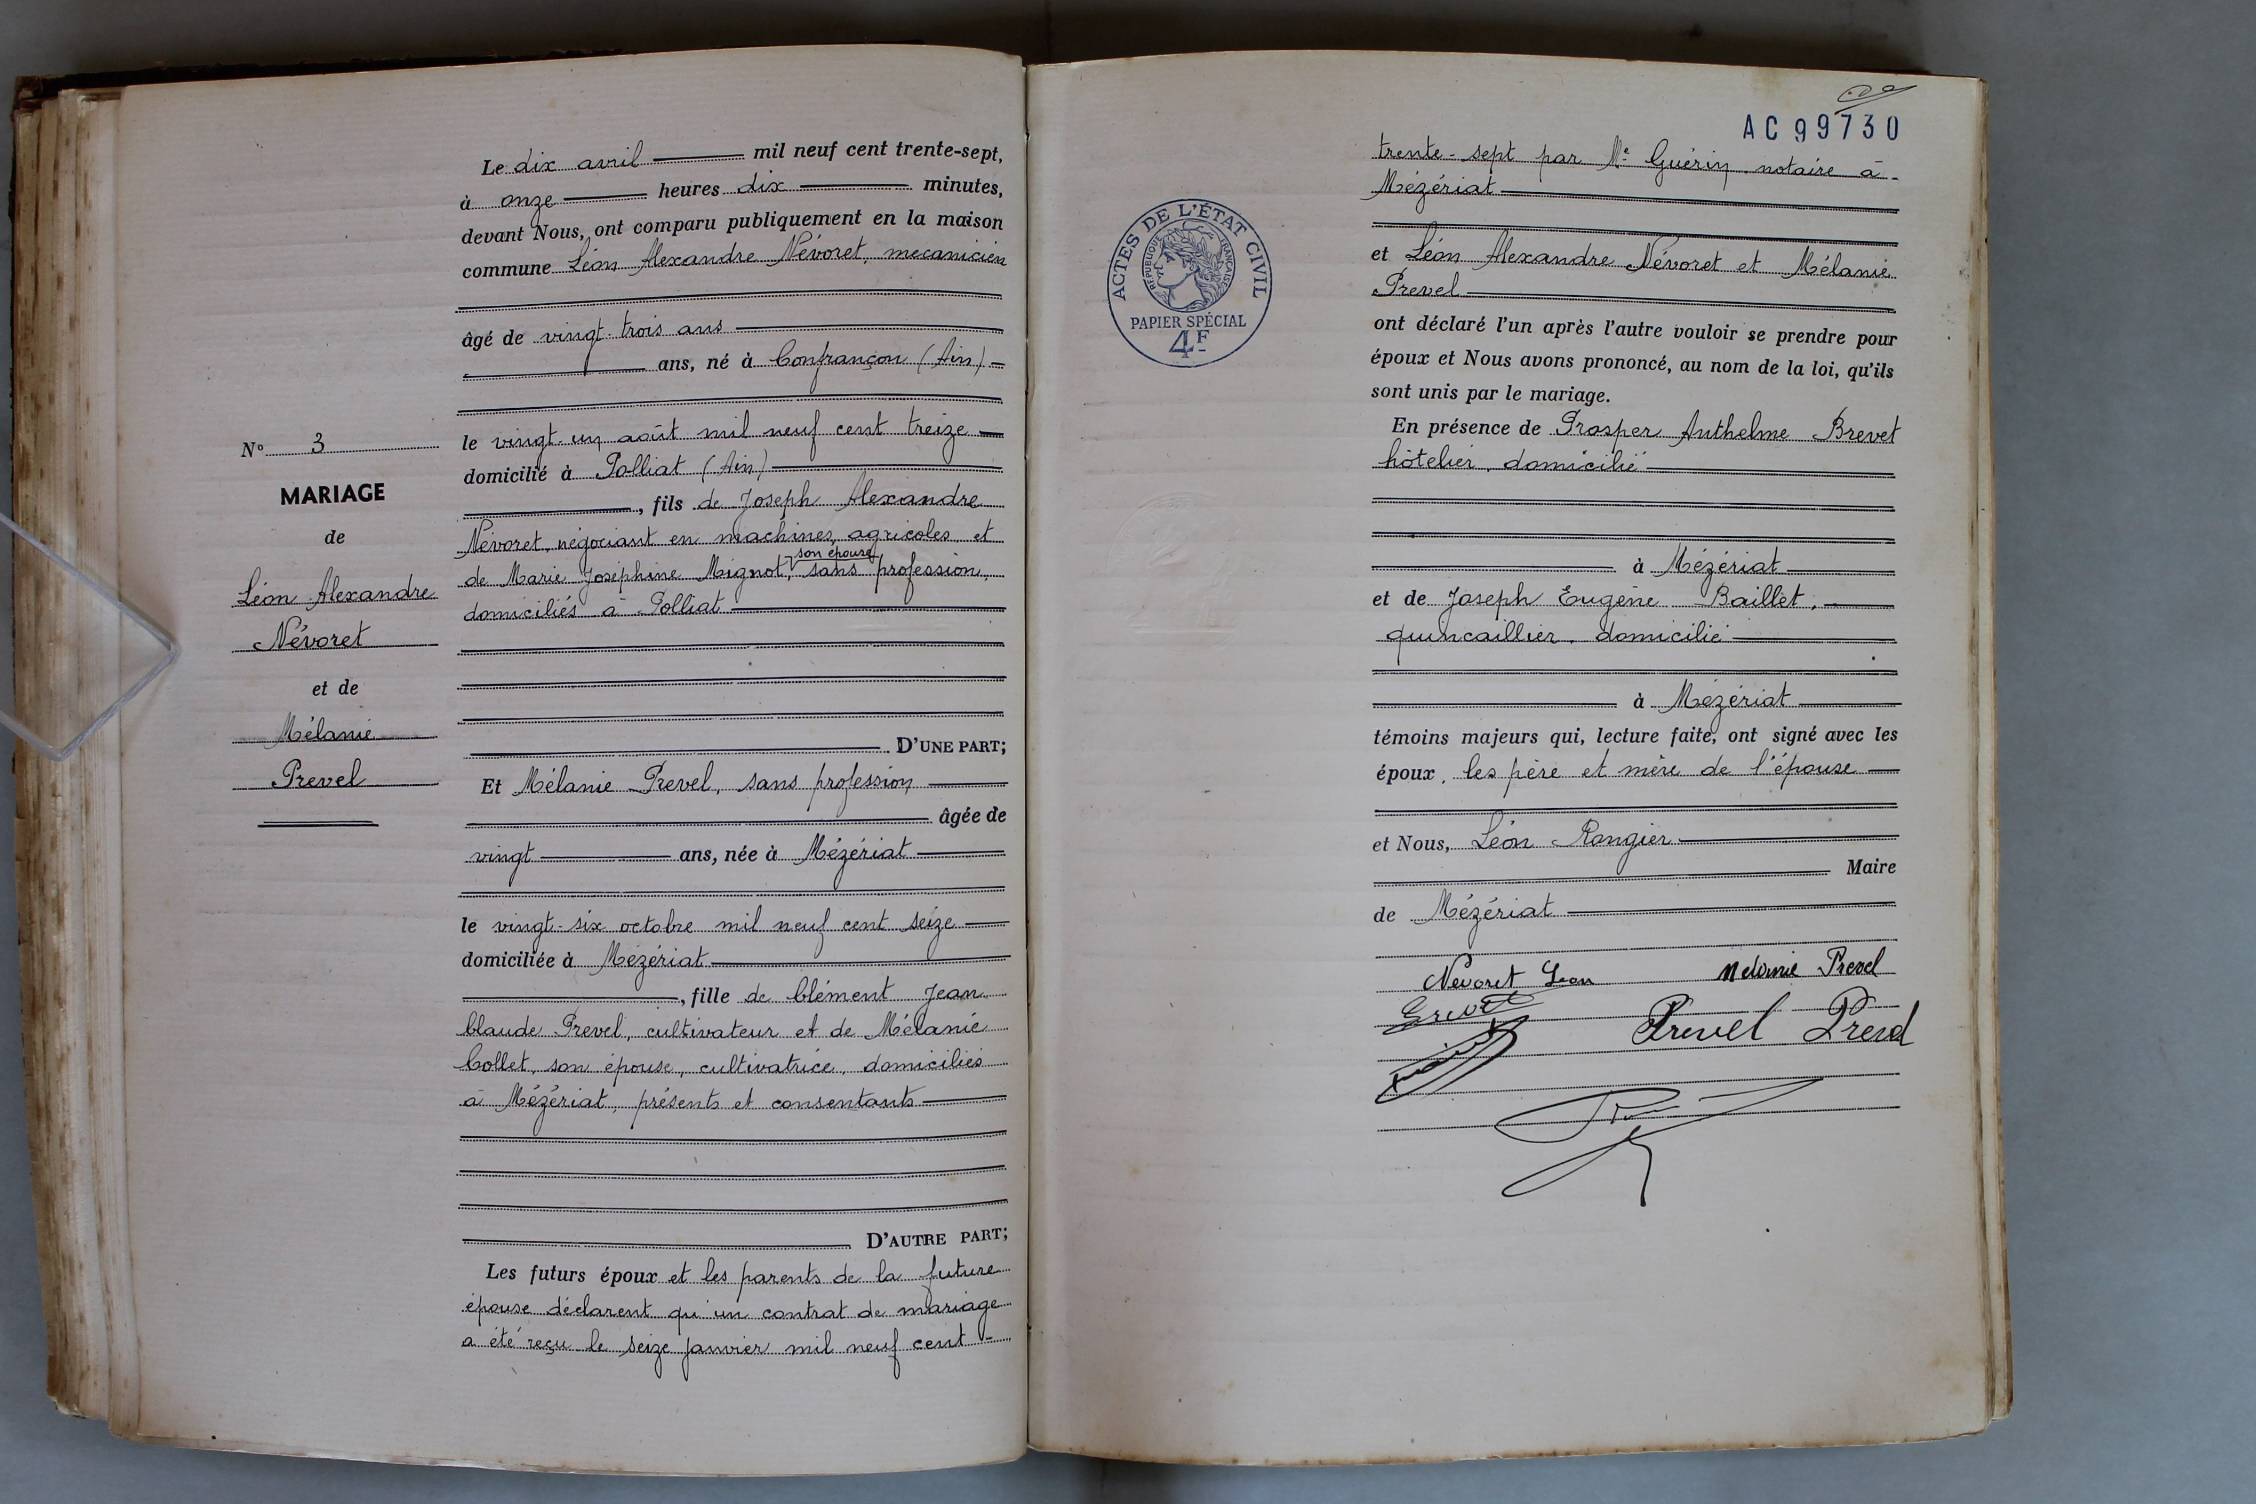 N° 3
MARIAGE
de
Léon Alexandre
Névoret
et de
Mélanie
Prevel
Le dix avril mil neuf cent trente-sept,
à onze heures dix minutes,
devant Nous, ont comparu publiquement en la maison
commune Léon Alexandre Névoret, mécanicien
âgé de vingt-trois ans
ans, né à Confrançon (Ain)
le vingt-un août mil neuf cent treize
domicilié à Polliat (Ain)
, fils de Joseph Alexandre
Névoret, négociant en machines agricoles et
son épouse
de Marie Joséphine Mignot, sans profession,
domiciliés à Polliat
D'UNE PART;
Et Mélanie Prevel, sans profession
âgée de
vingt ans, née à Mézériat
le vingt-six octobre mil neuf cent seize
domiciliée à Mézériat
, fille de Clément Jean
Claude Prevel, cultivateur et de Mélanie
Collet, son épouse, cultivatrice, domiciliés
à Mézériat, présents et consentants
D'AUTRE PART;
Les futurs époux et les parents de la future
épouse déclarent qu'un contrat de mariage
a été reçu le seize janvier mil neuf cent-
AC 99730
trente-sept par Me Guérin, notaire à
Mézériat
ACTES DE L'ÉTAT CIVIL
RÉPUBLIQUE FRANÇAISE
PAPIER SPÉCIAL
4F
et Léon Alexandre Névoret et Mélanie
Prevel
ont déclaré l'un après l'autre vouloir se prendre pour
époux et Nous avons prononcé, au nom de la loi, qu'ils
sont unis par le mariage.
En présence de Prosper Anthelme Brevet
hôtelier, domicilié
à Mézériat
et de Joseph Eugène Baillet,
quincaillier, domicilié
à Mézériat
témoins majeurs qui, lecture faite, ont signé avec les
époux, les père et mère de l'épouse
et Nous, Léon Rongier
Maire
de Mézériat
Nevoret Leon Melanie Prevel
Prevel Prevel